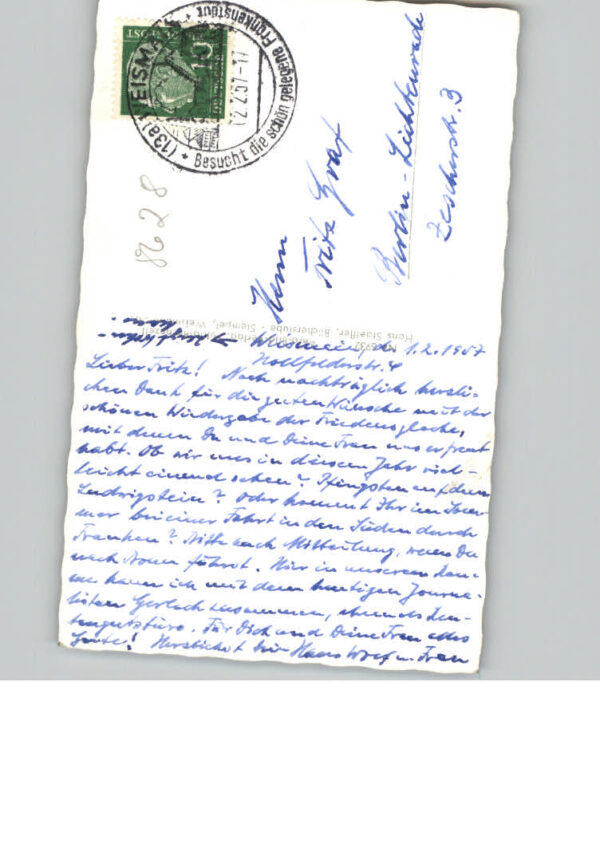 (13a) WEISMA
12.2.57-17
Besucht die schön gelegene Frankenstadt
10
POST
8628
Herrn
Fritz Graf
Berlin-Lichtenrade
Zescherstr. 3
Hans Staeffer, Bücherstube - Stempel, Weismain
Weismain, den 1.2.1957
Lieber Fritz! Noch nachträglich herzli-
chen Dank für die guten Wünsche mit der
schönen Wiedergabe der Friedensglocke,
mit denen Du und Deine Frau uns erfreut
habt. Ob wir uns in diesem Jahr viel-
leicht einmal sehen? Pfingsten auf dem
Ludwigstein? Oder kommt Ihr im Som-
mer bei einer Fahrt in den Süden durch
Franken? Bitte auch Mitteilung, wenn Du
nach Rom fährst. Hier in unserem
kam ich mit dem heutigen Journa-
listen Gerlach zusammen, ehemals
Für Dich und Deine Frau alles
Gute! Herzlichst Dein Hans Wolf u. Frau